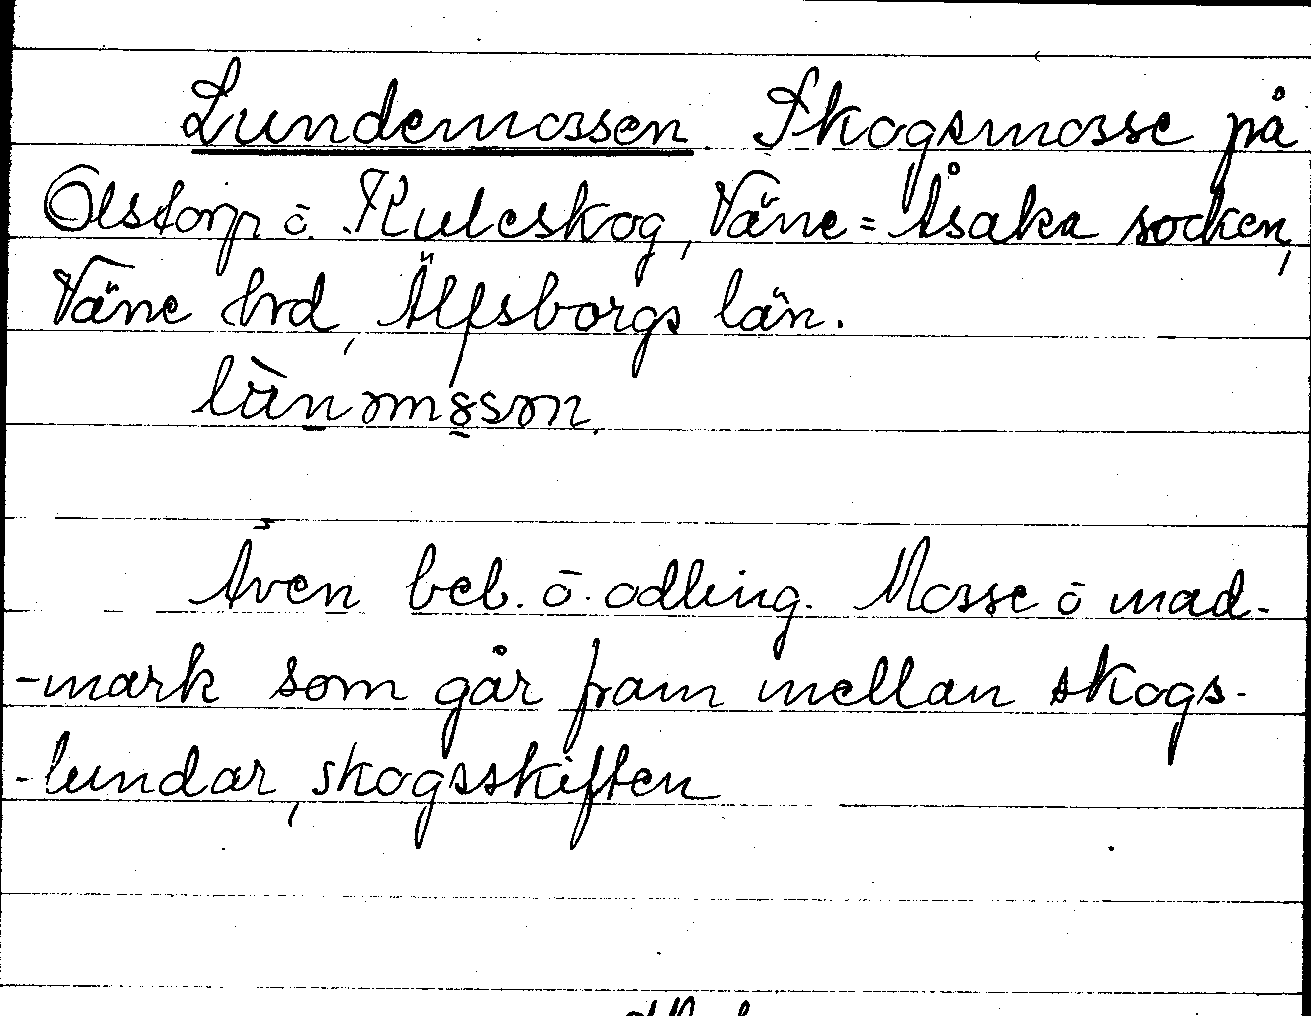 Lundemossen. Skogsmosse på
Olstorp ō. Kuleskog, Väne=Åsaka socken,
Väne hrd, Älfsborgs län.
Även beb. ō. odling. Mosse ō mad-
-mark som går fram mellan skogs-
-lundar, skogsskiften